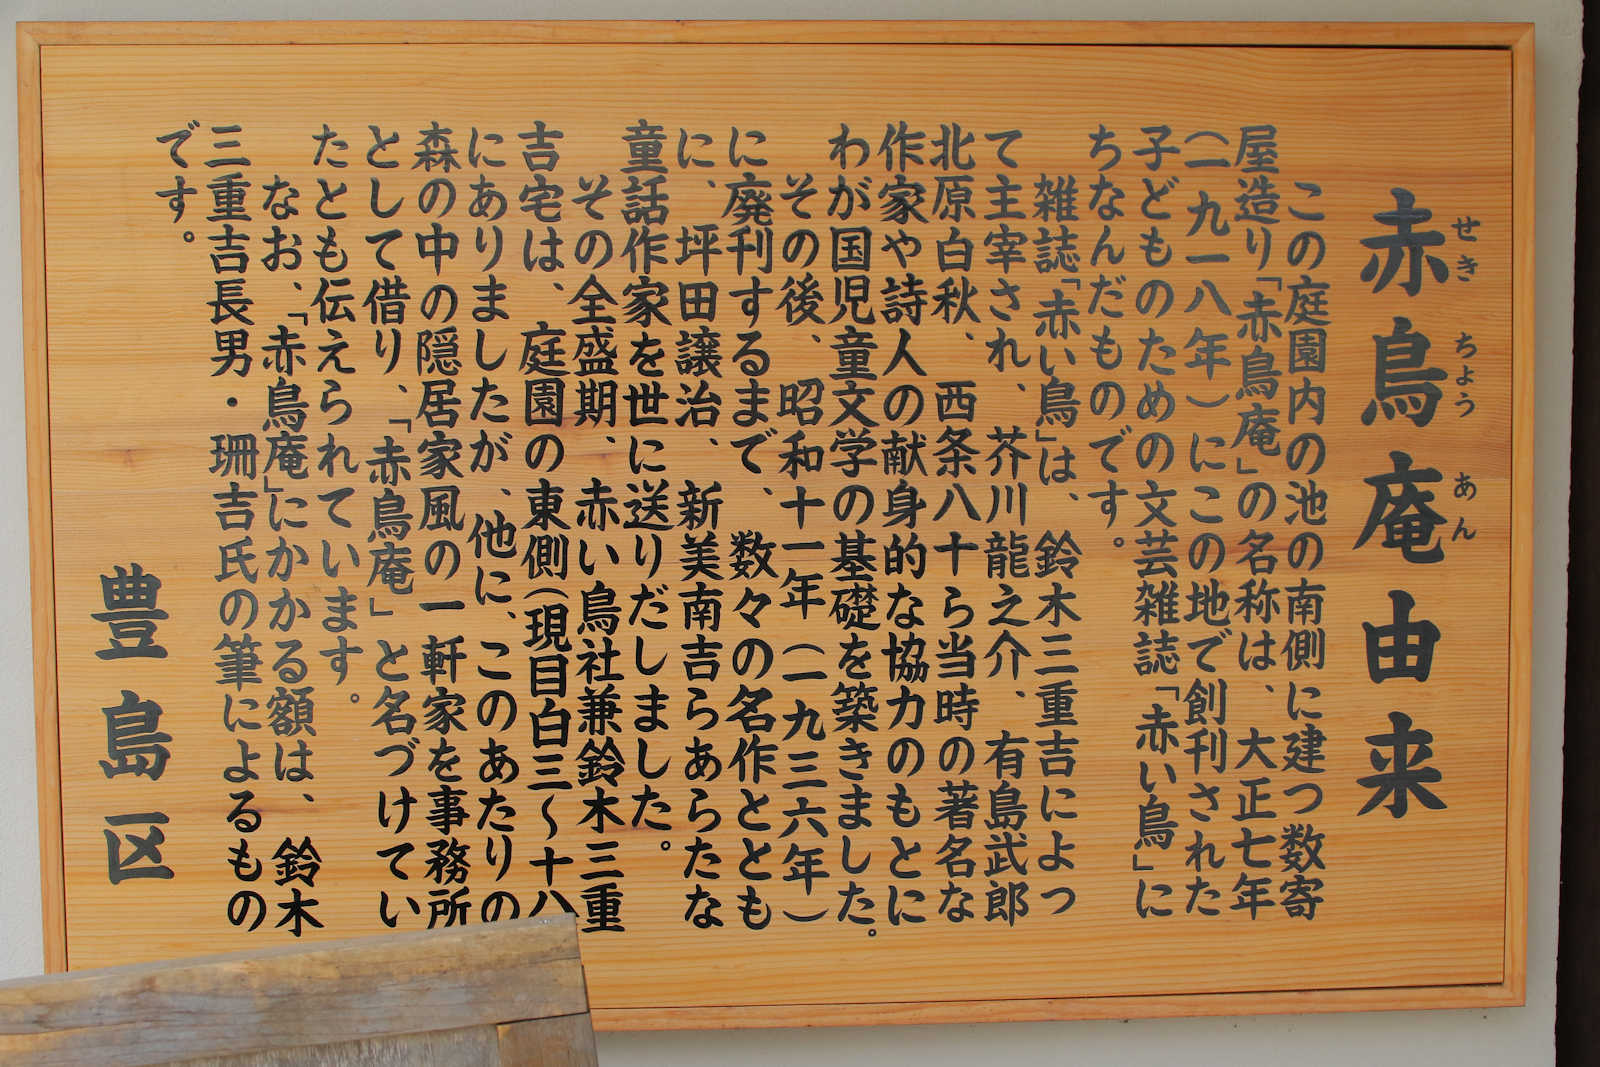 赤鳥庵由来
せき ちょう あん
この庭園内の池の南側に建つ数寄
屋造り「赤鳥庵」の名称は、大正七年
(一九一八年)にこの地で創刊された
子どものための文芸雑誌「赤い鳥」に
ちなんだものです。
雑誌「赤い鳥」は、鈴木三重吉によっ
て主宰され、芥川龍之介、有島武郎
北原白秋、西条八十ら当時の著名な
作家や詩人の献身的な協力のもとに
わが国児童文学の基礎を築きました。
その後、昭和十一年(一九三六年)
に廃刊するまで、数々の名作ととも
に、坪田譲治、新美南吉らあらたな
童話作家を世に送りだしました。
その全盛期、赤い鳥社兼鈴木三重
吉宅は、庭園の東側(現目白三〜十八
にありましたが、他に、このあたりの
森の中の隠居家風の一軒家を事務所
として借り、「赤鳥庵」と名づけてい
たとも伝えられています。
なお、「赤鳥庵」にかかる額は、鈴木
三重吉長男・珊吉氏の筆によるもの
です。
豊島区